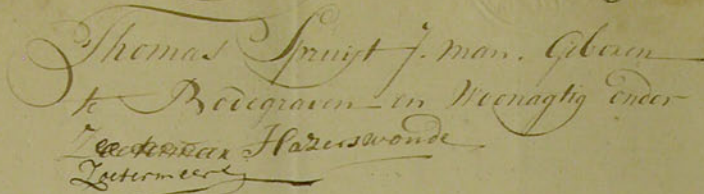 Thomas Spruijt J. man. Geboren
te Bodegraven en Woonagtig onder
Hazerswoude
Zoetermeer